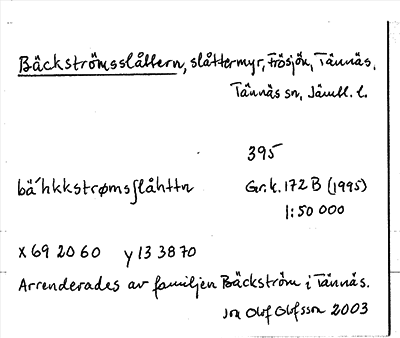 Bäckströmsslåttern, slåttermyr, Frösjön, Tännäs.
Tännäs sn, Jämtl. l.
395
bä´hkkstrømsʃlåhttn Gr.k. 172 B (1995)
1:50 000
x 69 20 60 y 13 38 70
Arrenderades av familjen Bäckström i Tännäs.
Jon Olof Olofsson 2003